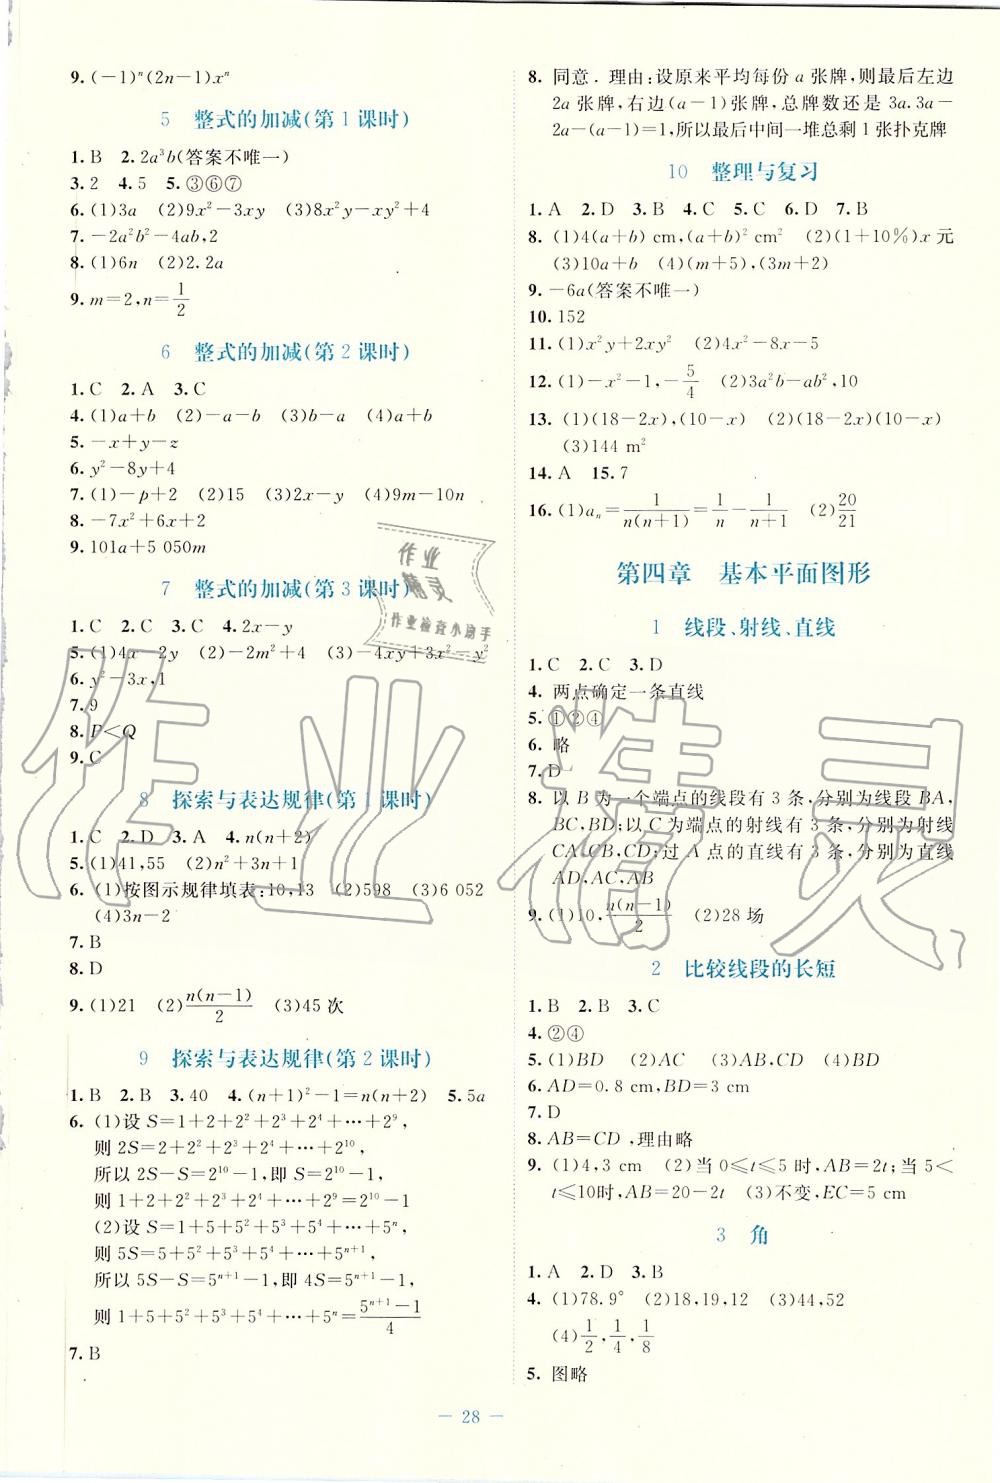 9. (−1)ⁿ(2n−1)xⁿ
5 整式的加减(第1课时)
1. B 2. 2a³b(答案不唯一)
3. 2 4. 5 5. ③⑥⑦
6. (1)3a (2)9x²−3xy (3)8x²y−xy²+4
7. −2a²b²−4ab,2
8. (1)6n (2)2.2a
9. m=2,n=1/2
6 整式的加减(第2课时)
1. C 2. A 3. C
4. (1)a+b (2)−a−b (3)b−a (4)a+b
5. −x+y−z
6. y²−8y+4
7. (1)−p+2 (2)15 (3)2x−y (4)9m−10n
8. −7x²+6x+2
9. 101a+5 050m
7 整式的加减(第3课时)
1. C 2. C 3. C 4. 2x−y
5. (1)4x−2y (2)−2m²+4 (3)−4xy+3x²−y²
6. y²−3x,1
7. 9
8. P<Q
9. C
8 探索与表达规律(第1课时)
1. C 2. D 3. A 4. n(n+2)
5. (1)41,55 (2)n²+3n+1
6. (1)按图示规律填表:10,13 (2)598 (3)6 052
(4)3n−2
7. B
8. D
9. (1)21 (2)n(n−1)/2 (3)45次
9 探索与表达规律(第2课时)
1. B 2. B 3. 40 4. (n+1)²−1=n(n+2) 5. 5a
6. (1)设 S=1+2+2²+2³+2⁴+⋯+2⁹,
则 2S=2+2²+2³+2⁴+⋯+2¹⁰,
所以 2S−S=2¹⁰−1,即 S=2¹⁰−1,
则 1+2+2²+2³+2⁴+⋯+2⁹=2¹⁰−1
(2)设 S=1+5+5²+5³+5⁴+⋯+5ⁿ,
则 5S=5+5²+5³+5⁴+⋯+5ⁿ⁺¹,
所以 5S−S=5ⁿ⁺¹−1,即 4S=5ⁿ⁺¹−1,
则 1+5+5²+5³+5⁴+⋯+5ⁿ=(5ⁿ⁺¹−1)/4
7. B
8. 同意. 理由:设原来平均每份 a 张牌,则最后左边
2a 张牌,右边(a−1)张牌,总牌数还是 3a. 3a−
2a−(a−1)=1,所以最后中间一堆总剩 1 张扑克牌
10 整理与复习
1. A 2. D 3. B 4. C 5. C 6. D 7. B
8. (1)4(a+b) cm,(a+b)² cm² (2)(1+10%)x 元
(3)10a+b (4)(m+5),(3m+2)
9. −6a(答案不唯一)
10. 152
11. (1)x²y+2xy² (2)4x²−8x−5
12. (1)−x²−1,−5/4 (2)3a²b−ab²,10
13. (1)(18−2x),(10−x) (2)(18−2x)(10−x)
(3)144 m²
14. A 15. 7
16. (1)aₙ=1/n(n+1)=1/n−1/(n+1) (2)20/21
第四章 基本平面图形
1 线段、射线、直线
1. C 2. C 3. D
4. 两点确定一条直线
5. ①②④
6. 略
7. D
8. 以 B 为一个端点的线段有 3 条,分别为线段 BA,
BC,BD;以 C 为端点的射线有 3 条,分别为射线
CA,CB,CD;过 A 点的直线有 3 条,分别为直线
AD,AC,AB
9. (1)10,n(n−1)/2 (2)28场
2 比较线段的长短
1. B 2. B 3. C
4. ②④
5. (1)BD (2)AC (3)AB,CD (4)BD
6. AD=0.8 cm,BD=3 cm
7. D
8. AB=CD,理由略
9. (1)4,3 cm (2)当 0⩽t⩽5 时,AB=2t;当 5<
t⩽10时,AB=20−2t (3)不变,EC=5 cm
3 角
1. A 2. D 3. B
4. (1)78.9° (2)18,19,12 (3)44,52
(4)1/2,1/4,1/8
5. 图略
— 28 —
作业精灵
作业检查小助手
作业精灵